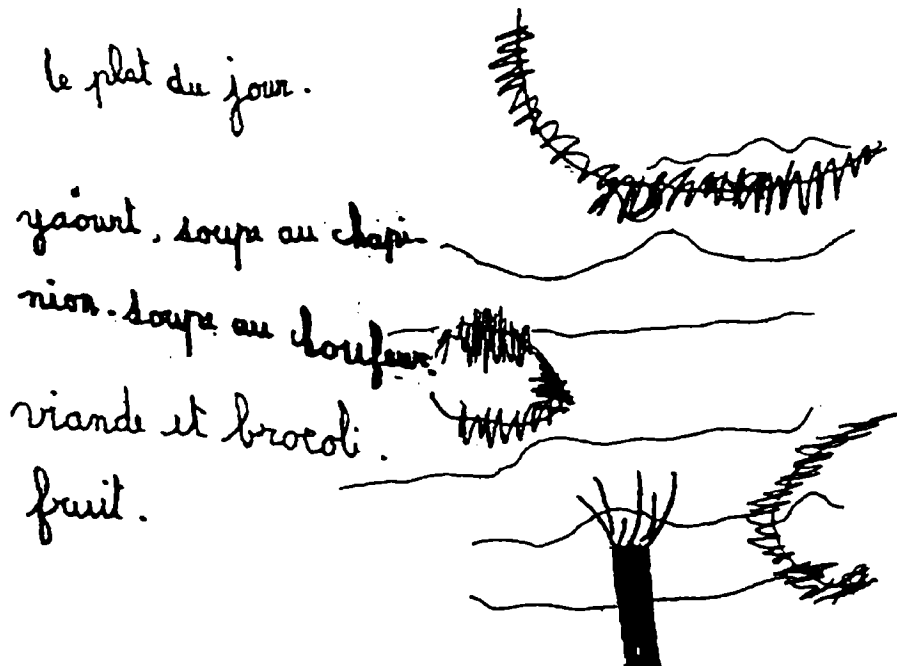 le plat du jour.
yaourt, soupe au chapi-
nion. soupe au choufeur.
viande et brocoli.
fruit.